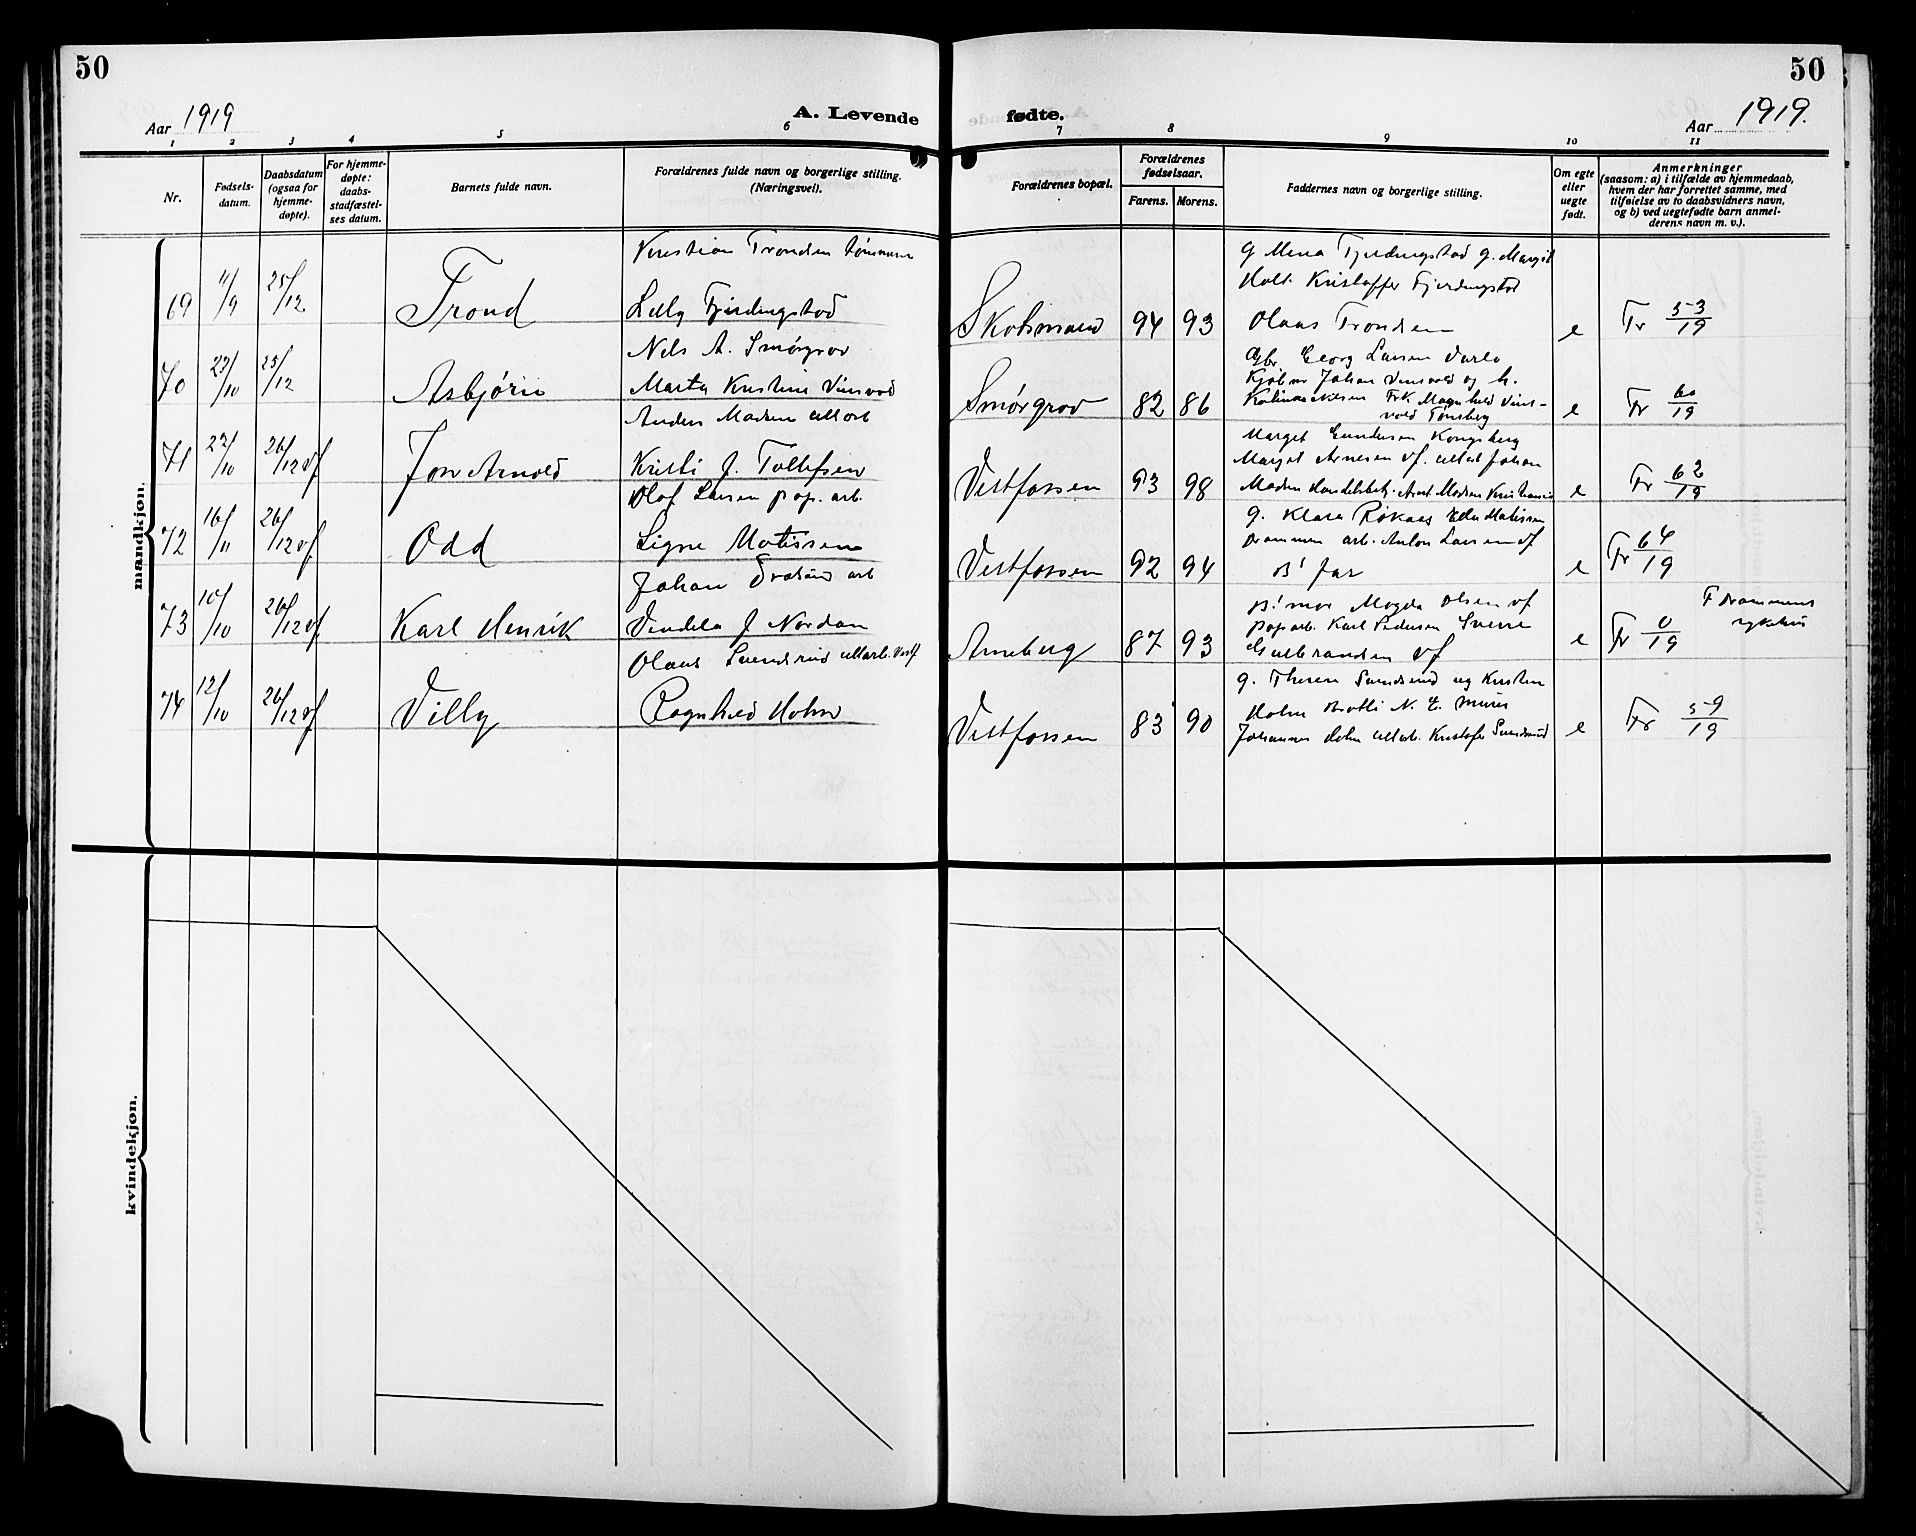 50
50
Aar 1919
A. Levende
fødte.
Aar 1919.
1 2 3 4 5 6 7 8 9 10 11
Nr.
Fødsels-
datum.
Daabsdatum
(ogsaa for
hjemme-
døpte).
For hjemme-
døpte:
daabs-
stadfæstel-
ses datum.
Barnets fulde navn.
Forældrenes fulde navn og borgerlige stilling.
(Næringsvei).
Forældrenes bopæl.
Forældrenes
fødselsaar.
Farens. Morens.
Faddernes navn og borgerlige stilling.
Om egte
eller
uegte
født.
Anmerkninger
(saasom: a) i tilfælde av hjemmedaab,
hvem der har forrettet samme, med
tilføielse av to daabsvidners navn,
og b) ved uegtefødte barn anmel-
derens navn m. v.).
mandkjøn.
69 11/9 25/12
Trond
Kristian Trondsen tømmerm
Lilly Fjerdingstad
Skotsmoen 94 93
g Mina Fjerdingstad g. Margit
Holt. Kristoffer Fjerdingstad
Olaus Trondsen
e
Fr 53/19
70 23/10 25/12
Asbjörn
Nils A. Smörgrav
Marta Kristine Vinsvold
Smörgrav 82 86
Gbr. Georg Larsen Varlo
Kjöbm Johan Vinsvold og h.
Nilsen Frk Magnhild Vins-
vold Tønsberg
e
Fr 60/19
71 22/10 26/12 vf
Jon Arnold
Anders Madsen cell arb
Kristi J. Tollefsen
Vestfossen 93 98
Marget Gundersen Kongsberg
Marget Arnesen Vf. cellarb Johan
Madsen Handelsbetj. Arnt Madsen Kristiania
e
Fr 62/19
72 16/11 26/12 vf
Odd
Olaf Larsen pap. arb.
Signe Matissen
Vestfossen 92 94
g. Klara Rökaas Ella Matissen
Drammen arb. Anton Larsen vf
B' far
e
Fr 64/19
73 10/10 26/12 vf
Karl Henrik
Johan arb
Vendela J Nordan
Arneberg 87 93
B' mor Magda Olsen vf
pap arb. Karl Pedersen Sverre
Gulbrandsen Vf
e
Fr 0/19
F Drammens
sykehus
74 12/10 26/12 vf
Villy
Olaus Svendsrud cellarb. Vestf
Ragnhild Holm
Vestfossen 83 90
g. Therese Svendsrud og Kristen
Holm Brotli N. E. murer
Johannes Holm cellarb. Kristofer Svendsrud
e
Fr 59/19
kvindekjøn.